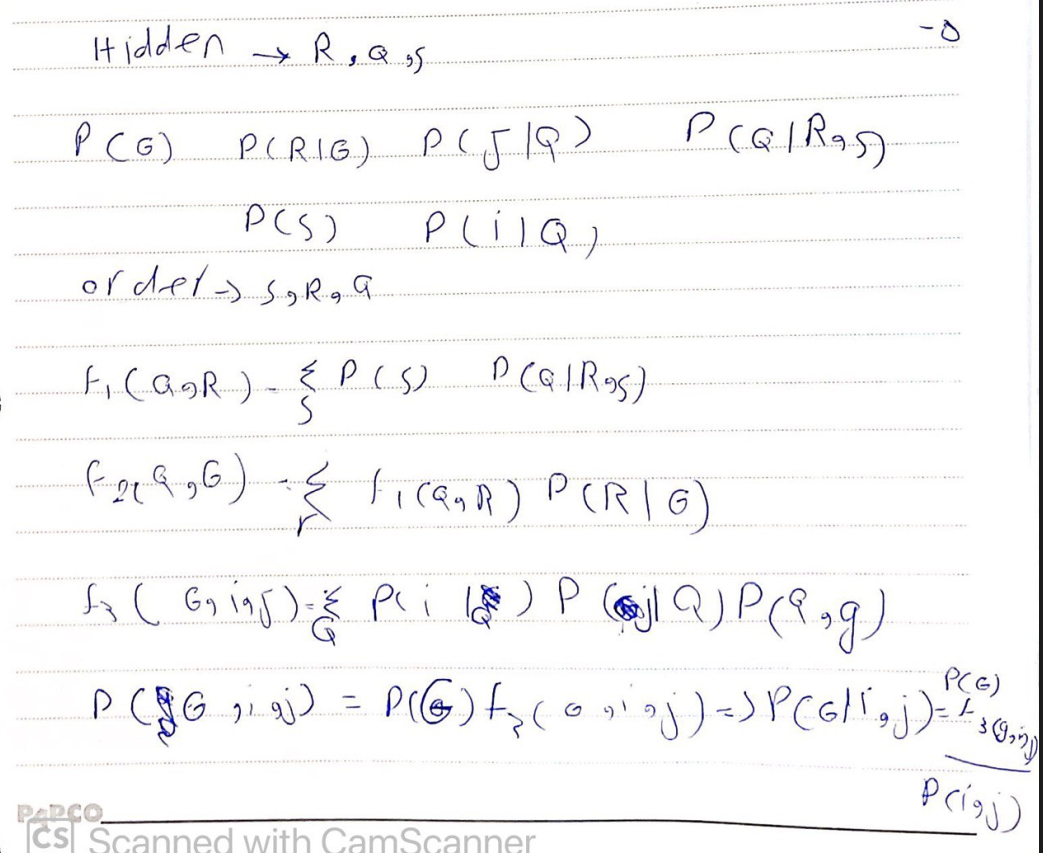 -5
Hidden → R, Q, S
P(G) P(R|G) P(J|Q) P(Q|R,S)
P(S) P(i|Q)
order → S, R, Q
f₁(Q,R) = Σ_S P(S) P(Q|R,S)
f₂(Q,G) = Σ_r f₁(Q,R) P(R|G)
f₃(G,i,j) = Σ_Q P(i|Q) P(j|Q) P(Q,g)
P(G,i,j) = P(G) f₃(G,i,j) => P(G|i,j) = P(G) f₃(g,i,j) / P(i,j)
PAPCO
CS Scanned with CamScanner